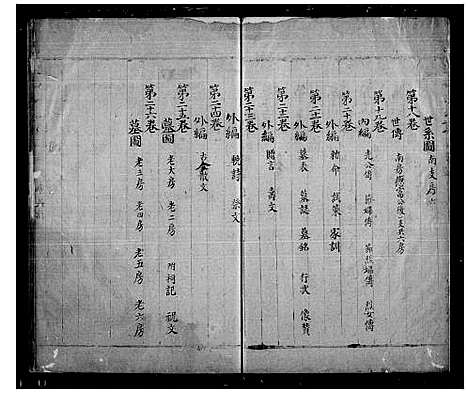 世系圖 南支房六
第十八卷
世傳 南房
第十九卷
內編 先公傳 節婦傳 節烈婦傳 烈女傳
第二十卷
外編 誥命 試策 家訓
第二十一卷
外編 墓表 墓誌 墓銘 行狀 像贊
第二十二卷
外編 贈言 壽文
第二十三卷
外編 輓詩 祭文
第二十四卷
外編 古今散文
第二十五卷
墓圖 老大房 老二房 附祠記 祝文
第二十六卷
墓圖 老三房 老四房 老五房 老六房